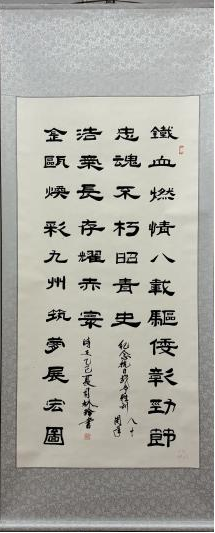 鐵血燃情八載驅倭彰勁節
忠魂不朽昭青史
紀念抗日戰爭勝利八十周年
浩氣長存耀赤寰
金甌煥彩九州筑夢展宏圖
時在乙巳夏月
書